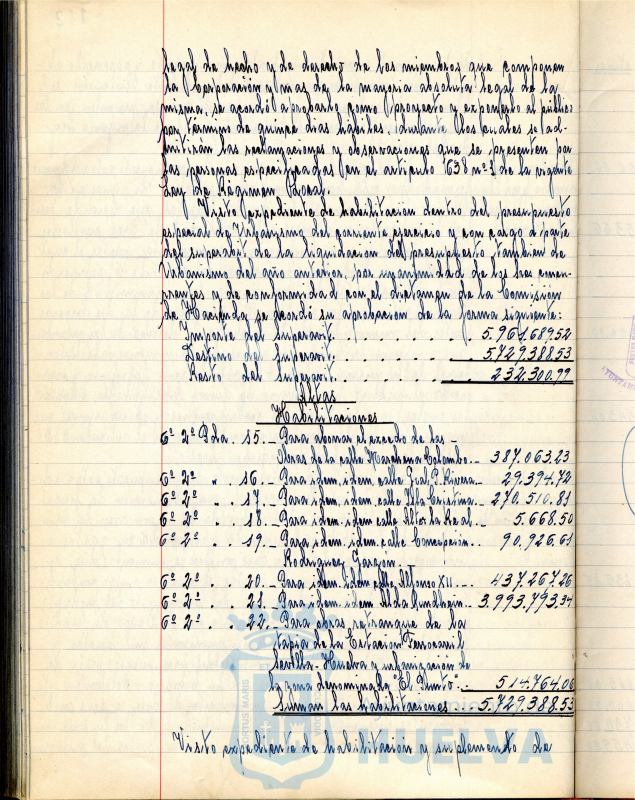 legal de hecho y de derecho de los miembros que componen
la Corporación y mas de la mayoria absoluta legal de la
misma, se acordó aprobarlo como proyecto y exponerlo al público
por término de quince dias hábiles, durante los cuales se ad-
mitirán las reclamaciones y observaciones que se presenten por
las personas especificadas en el artículo 638 nº3 de la vigente
Ley de Regimen Local.
Visto expediente de habilitación dentro del presupuesto
especial de Urbanismo del corriente ejercicio y con cargo a parte
del superabit de la liquidacion del presupuesto tambien de
Urbanismo del año anterior, por unanimidad de los Sres concu-
rrentes y de conformidad con el dictamen de la Comisión
de Hacienda se acordó su aprobacion de la forma siguiente:
Importe del Superavit . . . . . . . 5.961.689.52
Destino del Superavit . . . . . . . 5.729.388.53
Resto del Superavit . . . . . . . 232.300.99
Altas
Habilitaciones
6º 2º Pda. 15.- Para abonar el exceso de las -
Obras de la calle Marchena Colombo.. 387.063.23
6º 2º " 16.- Para idem. idem calle Gral. P. Rivera.. 29.394.72
6º 2º . . 17.- Para idem. idem. calle Isla Cristina.. 270.510.81
6º 2º . . 18.- Para idem. idem calle Alosno Real.. 5.668.50
6º 2º . . 19.- Para idem. idem. calle Concepción.. 90.926.61
Rodriguez Garzón
6º 2º . . 20.- Para idem. idem calle Alfonso XII.. 437.267.26
6º 2º . . 21.- Para idem. idem Alda Sundheim.. 3.993.793.34
6º 2º . . 22.- Para obras retranque de la
tapia de la Estación Ferrocarril
Sevilla-Huelva y urbanización de
la zona denominada "El Punto".. 514.764.06
Suman las habilitaciones . . . 5.729.388.53
Visto expediente de habilitación y suplemento de
HUELVA